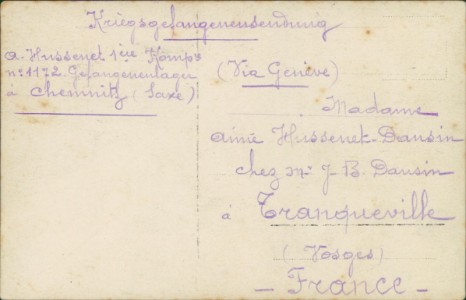 Kriegsgefangenensendung
A. Hussenet 1ère Komp
n° 1172. Gefangenenlager
à Chemnitz (Saxe)
(Via Genève)
Madame
Aimé Hussenet-Dansin
chez Mr J-B. Dansin
à Tranqueville
(Vosges)
- France -